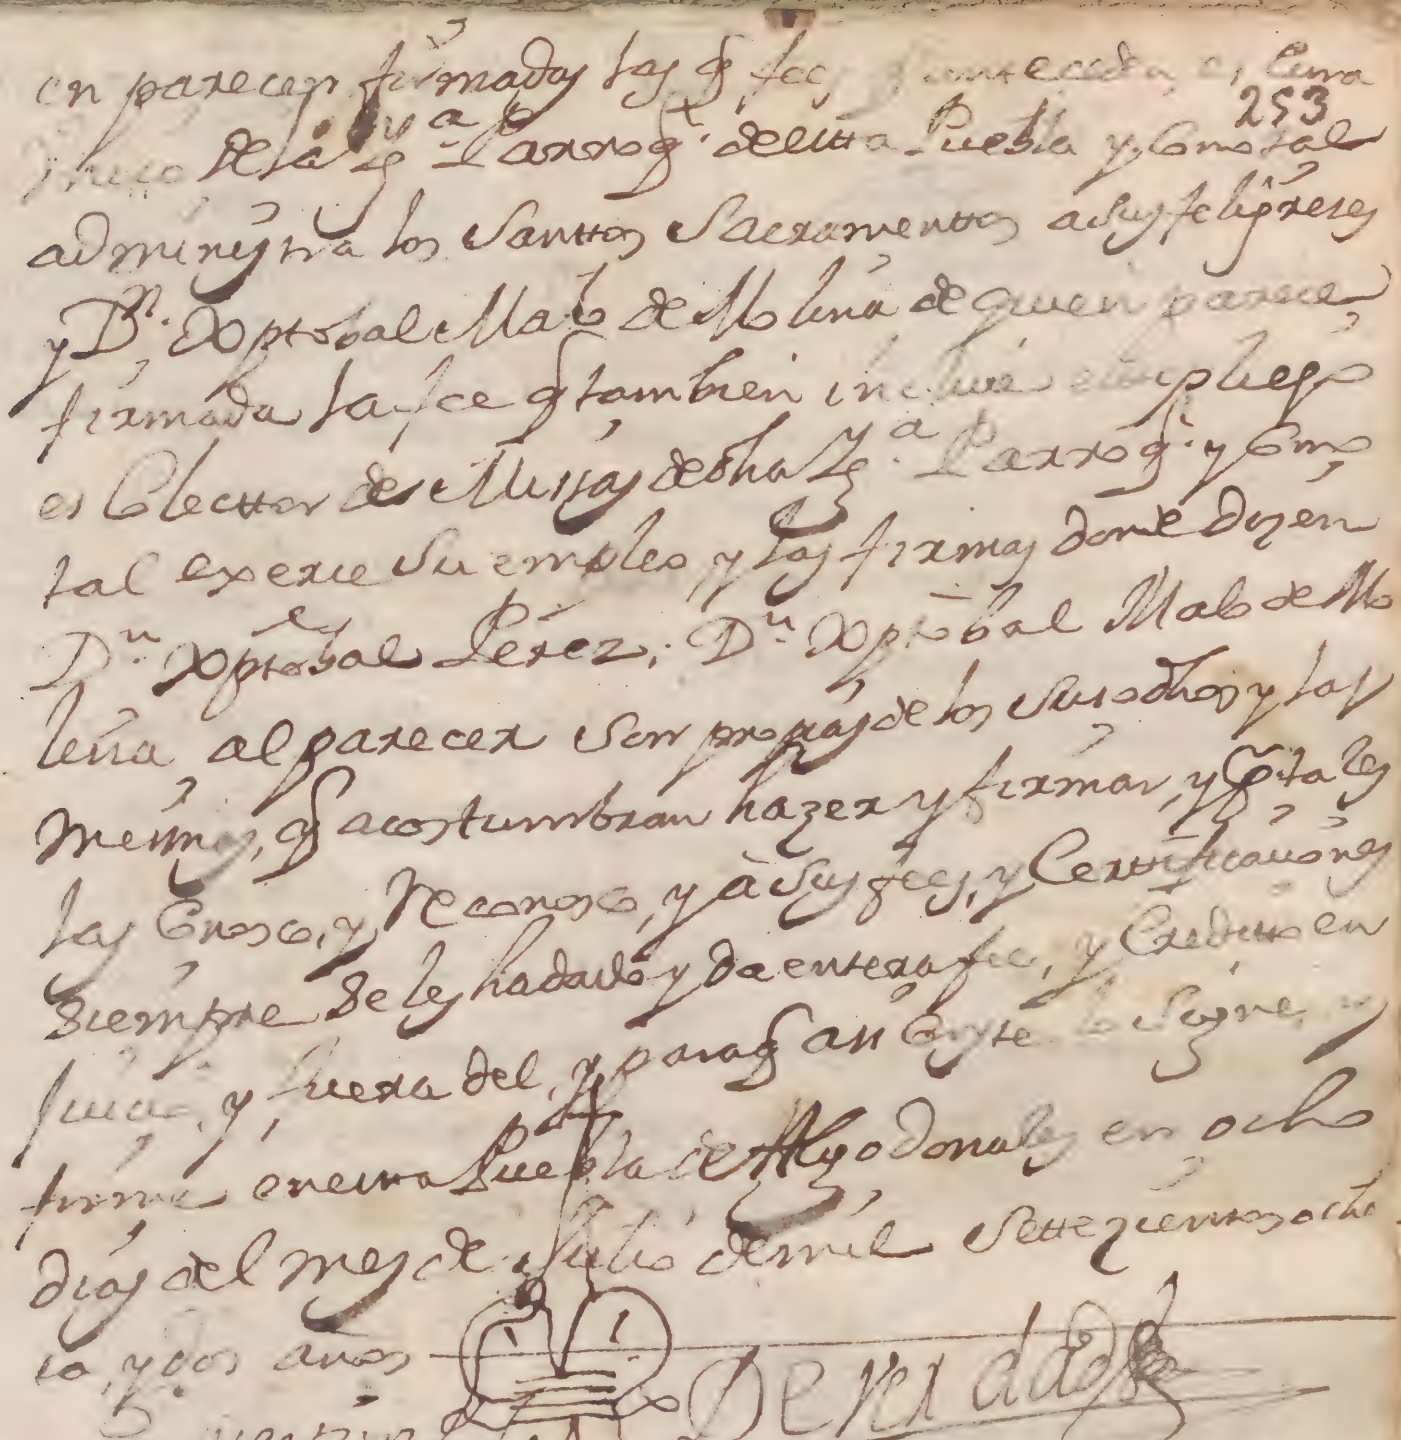 en parecen firmadas las q. fees q anteceden, es Cura
253
de la Yg.ª Parroq. de esta Puebla y Como tal
administra los Santtos Sacramenttos a sus feligreses
y D.n Xptobal Malo de Molina de quien parece
firmada la fee q tambien incluie este pliego
es Colecttor de Missas de dha Yg.ª Parroq. y Como
tal exerce su empleo y las firmas donde dizen
D.n Xptobal Perez; D.n Xptobal Malo de Mo
lina al parecer son propias de los susodhos y las
mesmas, q acostumbran hazer y firmar, y p. tales
las Conosco, y Reconosco, y à sus fees, y Certtificaciones
siempre se les ha dado y da entera fee, y Creditto en
juicio, y fuera del, y para q asi Conste lo signe, y
firme en esta Puebla de Algodonales en ocho
dias del mes de Julio de mil Settezienttos ochen
ta, y dos años
De verdad